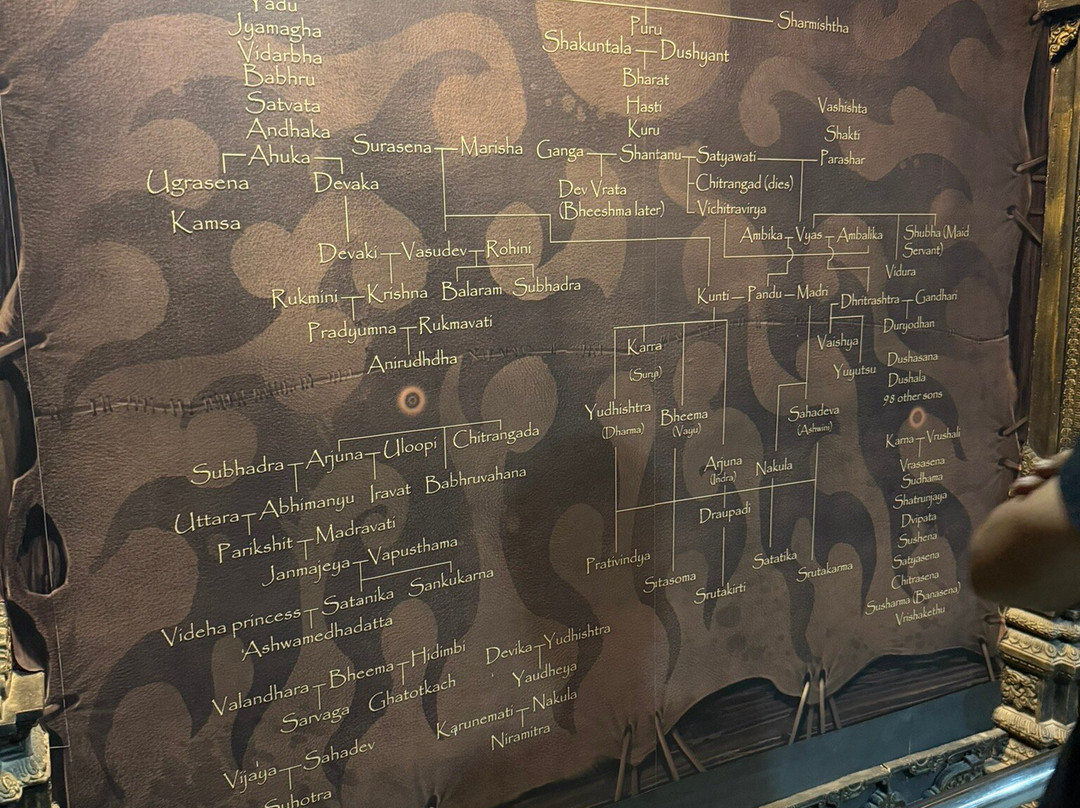 Yadu
Jyamagha
Vidarbha
Babhru
Satvata
Andhaka
Ahuka
Ugrasena
Devaka
Kamsa
Surasena
Marisha
Devaki
Vasudev
Rohini
Rukmini
Krishna
Balaram
Subhadra
Pradyumna
Rukmavati
Anirudhdha
Sharmishtha
Puru
Shakuntala
Dushyant
Bharat
Hasti
Kuru
Ganga
Shantanu
Satyawati
Vashishta
Shakti
Parashar
Dev Vrata
(Bheeshma later)
Chitrangad (dies)
Vichitravirya
Ambika
Vyas
Ambalika
Shubha (Maid
Servant)
Vidura
Kunti
Pandu
Madri
Dhritrashtra
Gandhari
Vaishya
Yuyutsu
Duryodhan
Dushasana
Dushala
98 other sons
Karra
(Surya)
Yudhishtra
(Dharma)
Bheema
(Vayu)
Arjuna
(Indra)
Nakula
Sahadeva
(Ashwini)
Draupadi
Prativindya
Sitasoma
Srutakirti
Satatika
Srutakarma
Karna
Vrushali
Vrasasena
Sudhama
Shatrunjaya
Dvipata
Sushena
Satyasena
Chitrasena
Susharma (Banasena)
Vrishakethu
Subhadra
Arjuna
Uloopi
Chitrangada
Uttara
Abhimanyu
Iravat
Babhruvahana
Parikshit
Madravati
Janmajeya
Vapusthama
Videha princess
Satanika
Sankukarna
Ashwamedhadatta
Valandhara
Bheema
Hidimbi
Sarvaga
Ghatotkach
Devika
Yudhishtra
Yaudheya
Karunemati
Nakula
Niramitra
Vijaya
Sahadev
Suhotra